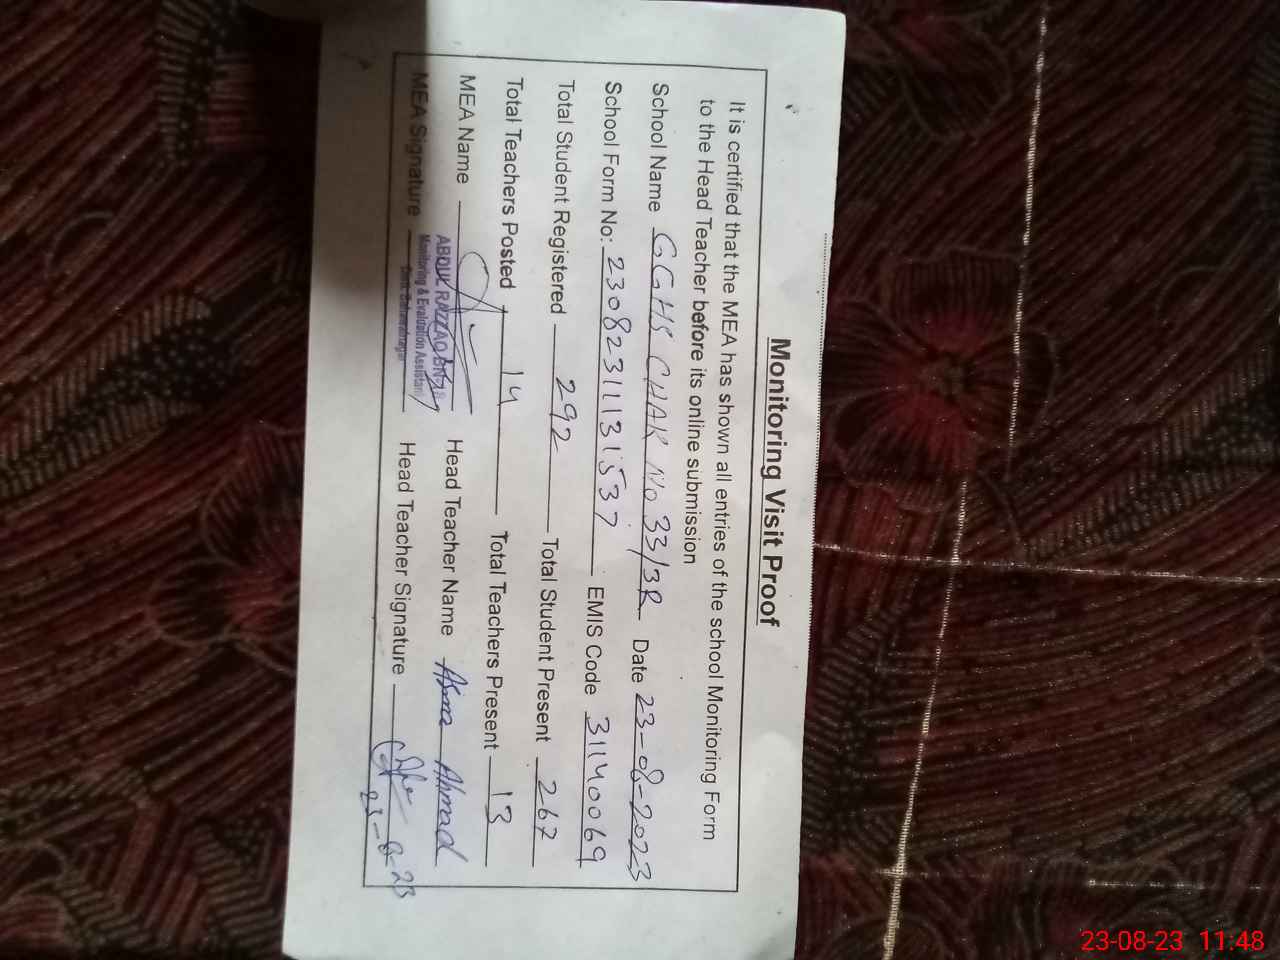 Monitoring Visit Proof
It is certified that the MEA has shown all entries of the school Monitoring Form
to the Head Teacher before its online submission
School Name GGHS CHAK No 33/3R Date 23-08-2023
School Form No: 23082311131537 EMIS Code 31140069
Total Student Registered 292 Total Student Present 267
Total Teachers Posted 14 Total Teachers Present 13
MEA Name Head Teacher Name Asma Ahmad
ABDUL RAZZAQ
Monitoring & Evaluation Assistant
MEA Signature Head Teacher Signature
Bahawalnagar
23-8-23
23-08-23 11:48